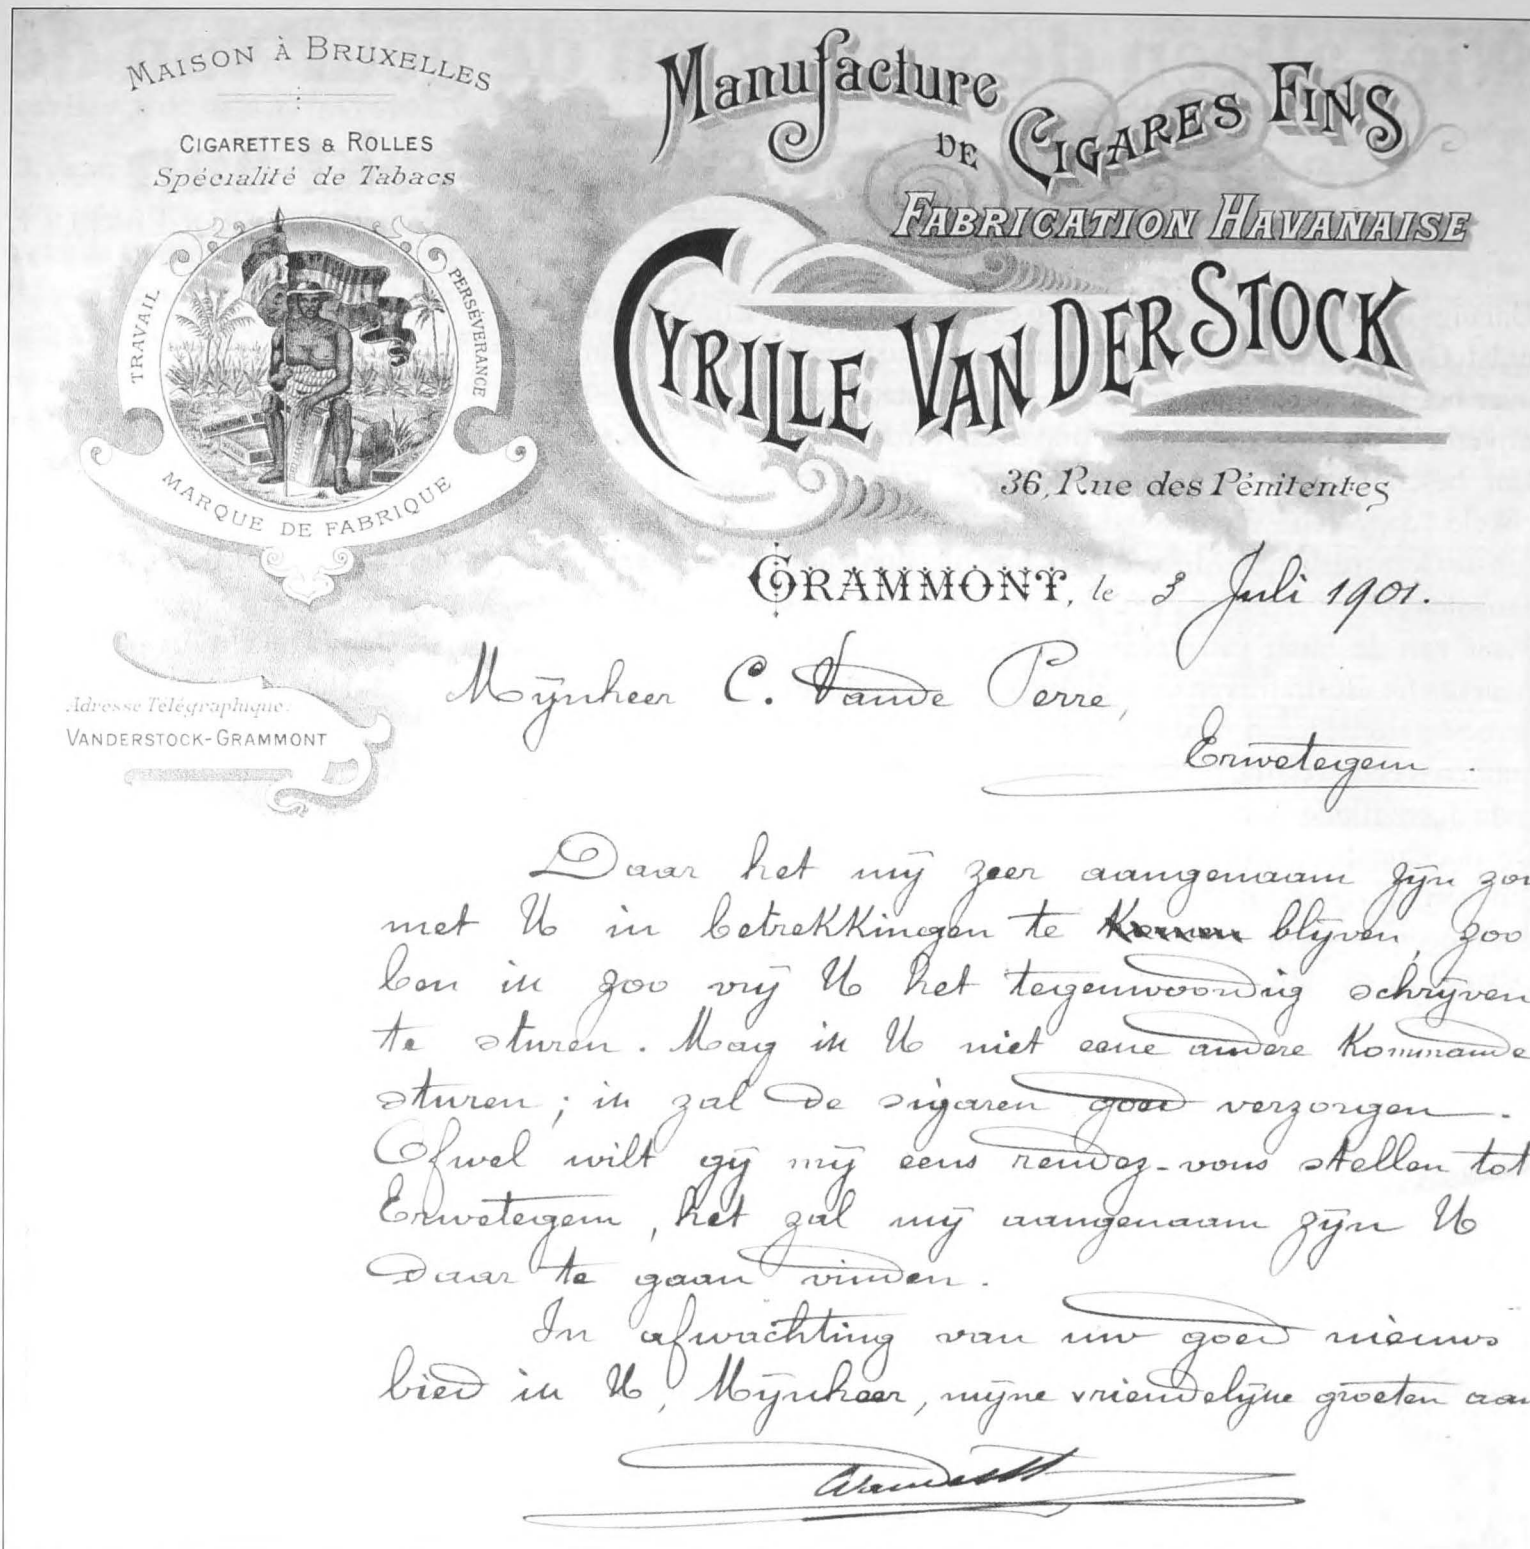 MAISON À BRUXELLES
CIGARETTES & ROLLES
Spécialité de Tabacs
TRAVAIL
PERSÉVERANCE
MARQUE DE FABRIQUE
Adresse Télégraphique:
VANDERSTOCK-GRAMMONT
Manufacture
DE CIGARES FINS
FABRICATION HAVANAISE
CYRILLE VAN DER STOCK
36, Rue des Pénitentes
GRAMMONT, le 3 Juli 1901.
Mijnheer C. Vande Perre,
Erwetegem.
Daar het mij zeer aangenaam zijn zou
met U in betrekkingen te blijven, zoo
ben ik zoo vrij U het tegenwoordig schrijven
te sturen. Mag ik U niet eene andere Kommande
sturen; ik zal de sigaren goed verzorgen.
Ofwel wilt gij mij eens rendez-vous stellen tot
Erwetegem, het zal mij aangenaam zijn U
daar te gaan vinden.
In afwachting van uw goed nieuws
bied ik U, Mijnheer, mijne vriendelijke groeten aan